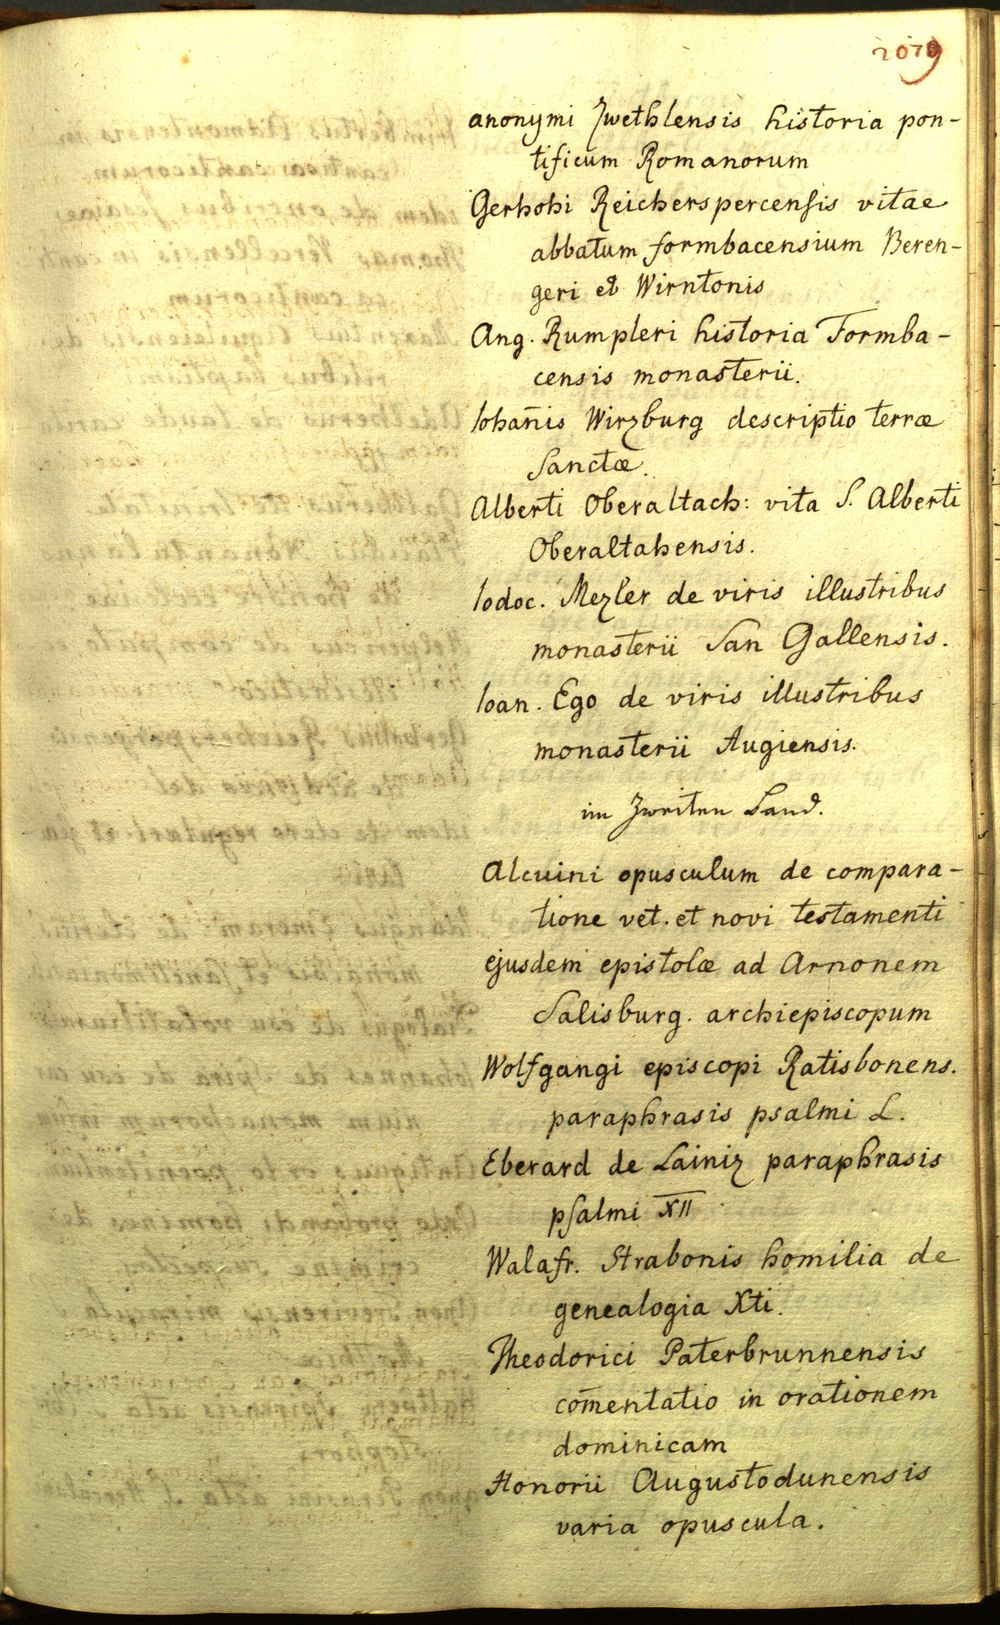 2079
anonymi Zwethlensis historia pon-
tificum Romanorum
Gerhohi Reicherspercensis vitae
abbatum formbacensium Beren-
geri et Wirntonis
Ang. Rumpleri historia Formba-
censis monasterii.
Iohan̄is Wirzburg descriptio terræ
Sanctæ.
Alberti Oberaltach: vita S. Alberti
Oberaltahensis.
Iodoc. Mezler de viris illustribus
monasterii San Gallensis.
Ioan. Ego de viris illustribus
monasterii Augiensis.
im Zweiten Band.
Alcuini opusculum de compara-
tione vet. et novi testamenti
ejusdem epistolæ ad Arnonem
Salisburg. archiepiscopum
Wolfgangi episcopi Ratisbonens.
paraphrasis psalmi L.
Eberard de Lainiz paraphrasis
psalmi XII
Walafr. Strabonis homilia de
genealogia Xti.
Theodorici Paterbrunnensis
com̄entatio in orationem
dominicam
Honorii Augustodunensis
varia opuscula.